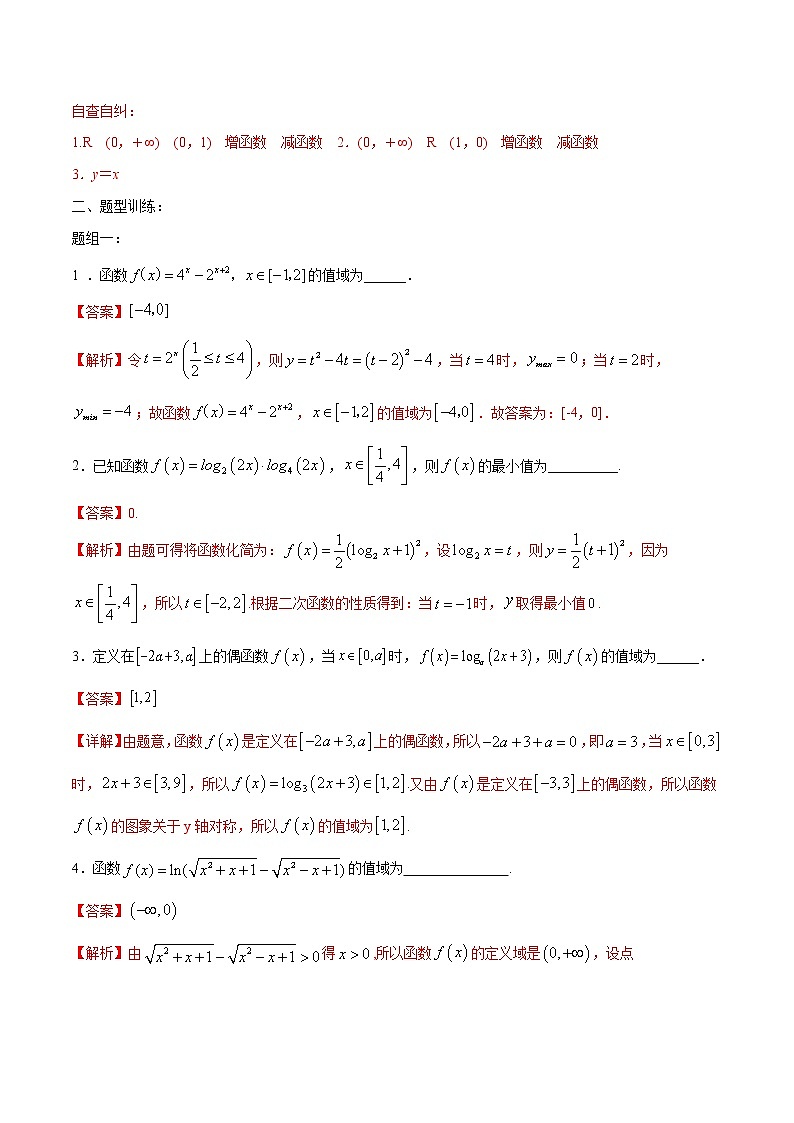 自查自纠：
1.R　(0，＋∞)　(0，1)　增函数　减函数　2．(0，＋∞)　R　(1，0)　增函数　减函数
3．y＝x
二、题型训练：
题组一：
1 ．函数 f(x)=4^x−2^{x+2}，x∈[−1,2] 的值域为______．
【答案】[−4,0]
【解析】令 t=2^x (1/2≤t≤4)，则 y=t²−4t=(t−2)²−4，当 t=4 时，y_max=0；当 t=2 时，
y_min=−4；故函数 f(x)=4^x−2^{x+2}，x∈[−1,2] 的值域为[−4,0]．故答案为：[-4，0]．
2.已知函数 f(x)=log₂(2x)·log₄(2x)，x∈[1/4,4]，则 f(x) 的最小值为__________.
【答案】0.
【解析】由题可得将函数化简为：f(x)=1/2(log₂ x+1)²，设 log₂ x=t，则 y=1/2(t+1)²，因为
x∈[1/4,4]，所以 t∈[−2,2].根据二次函数的性质得到：当 t=−1 时，y 取得最小值 0 .
3．定义在[−2a+3,a] 上的偶函数 f(x)，当 x∈[0,a] 时，f(x)=logₐ(2x+3)，则 f(x) 的值域为______．
【答案】[1,2]
【详解】由题意,函数 f(x) 是定义在[−2a+3,a] 上的偶函数,所以 −2a+3+a=0 ,即 a=3 ,当 x∈[0,3]
时，2x+3∈[3,9]，所以 f(x)=log₃(2x+3)∈[1,2].又由 f(x) 是定义在[−3,3] 上的偶函数，所以函数
f(x) 的图象关于 y 轴对称，所以 f(x) 的值域为[1,2].
4．函数 f(x)=ln(√(x²+x+1)−√(x²−x+1)) 的值域为_______________.
【答案】(−∞,0)
【解析】由 √(x²+x+1)−√(x²−x+1)>0 得 x>0 ,所以函数 f(x) 的定义域是(0,+∞)，设点